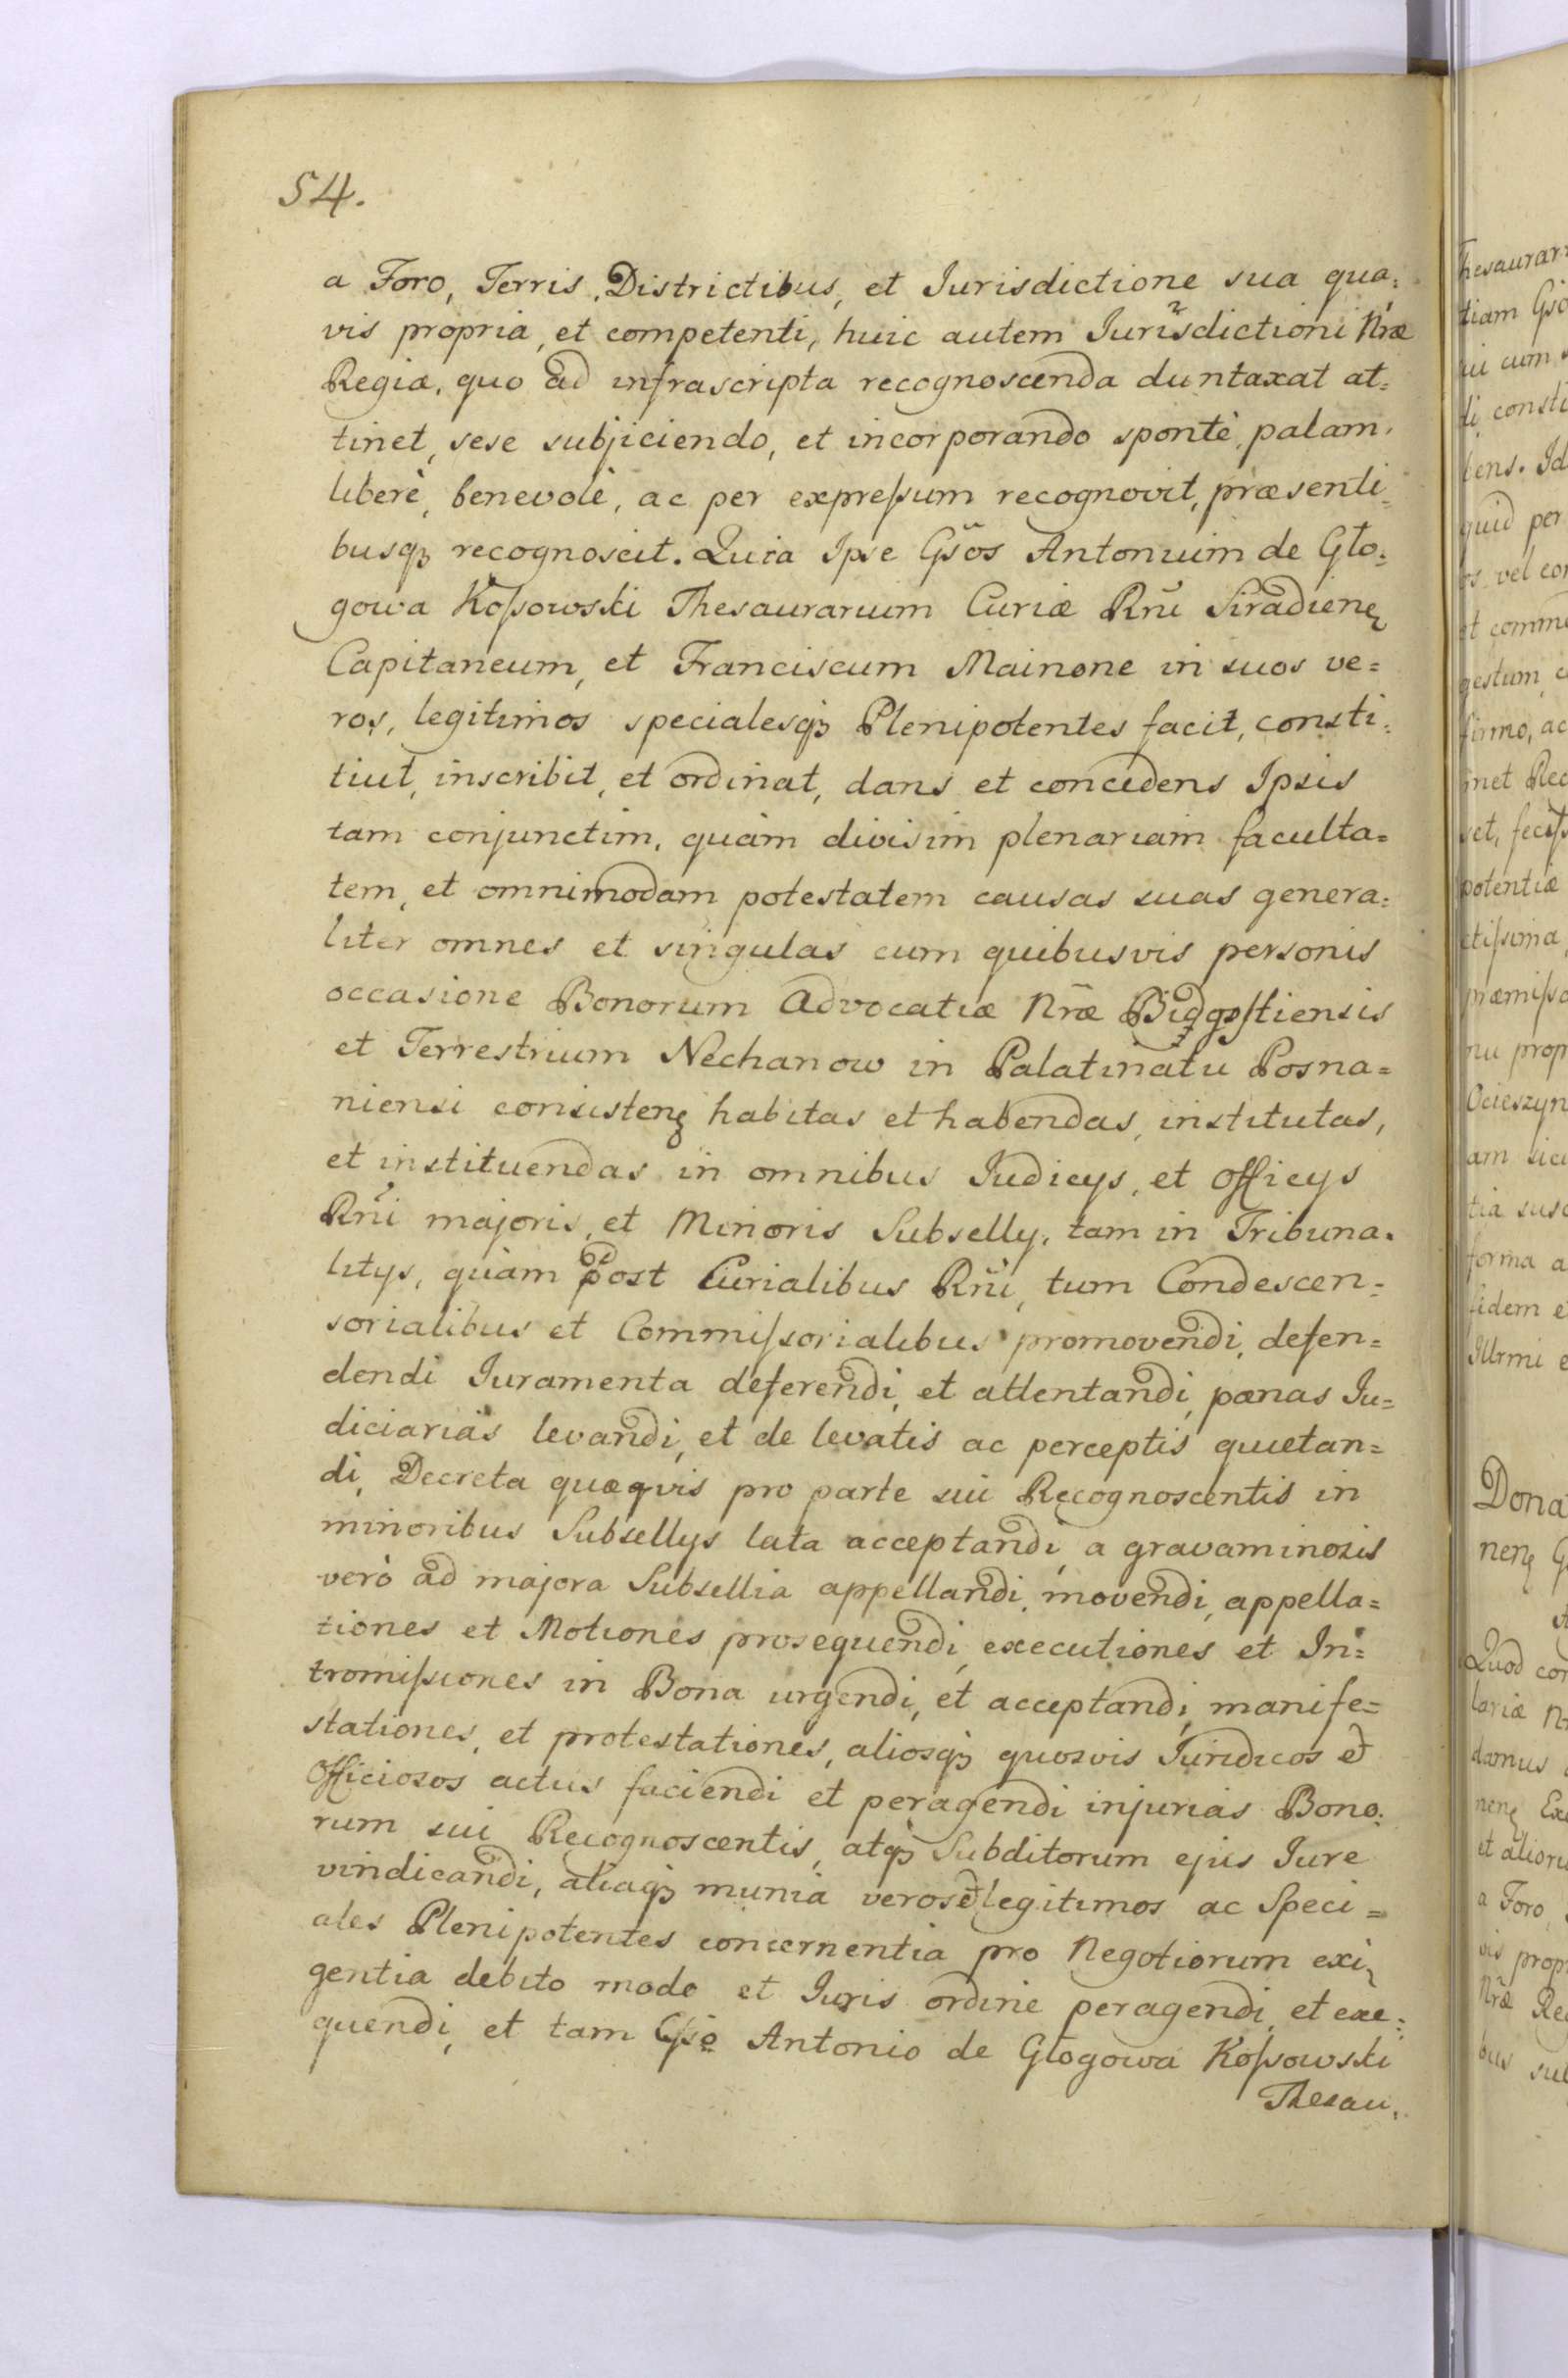 54.
a Foro, Terris, Districtibus, et Jurisdictione sua qua=
vis propria, et competenti, huic autem Jurisdictioni Nræ
Regiæ, quo ad infrascripta recognoscenda duntaxat at=
tinet, sese subjiciendo, et incorporando spontè, palam,
liberè, benevolè, ac per expreſsum recognovit, præsenti=
busqȝ recognoscit. Quia Ipse Gsos Antonium de Glo=
gowa Koſsowski Thesaurarium Curiæ Rni Siradien
Capitaneum, et Franciscum Mainone in suos ve=
ros, legitimos specialesqȝ Plenipotentes facit, consti=
tiut, inscribit, et ordinat, dans et concedens Ipsis
tam conjunctim, quàm divisim plenariam faculta=
tem, et omnimodam potestatem causas suas genera=
liter omnes et singulas cum quibusvis personis
occasione Bonorum Advocatiæ Nræ Bidgostiensis
et Terrestrium Nechanow in Palatinatu Posna=
niensi consisten habitas et habendas, institutas,
et instituendas in omnibus Judicys, et Officys
Rni majoris, et Minoris Subselly, tam in Tribuna=
litys, quàm post Curialibus Rni, tum Condescen=
sorialibus et Commiſsorialibus promovendi, defen=
dendi Juramenta deferendi, et attentandi, pænas Ju=
diciarias levandi, et de levatis ac perceptis quietan=
di, Decreta quæqvis pro parte sui Recognoscentis in
minoribus Subsellys lata acceptandi, a gravaminosis
verò ad majora Subsellia appellandi, movendi, appella=
tiones et Motiones prosequendi, executiones et In=
tromiſsiones in Bona urgendi, et acceptandi, manife=
stationes, et protestationes, aliosqȝ quosvis Juridicos et
Officiosos actus faciendi et peragendi injurias Bono=
rum sui Recognoscentis, atqȝ Subditorum ejus Jure
vindicandi, aliaqȝ munia veros et legitimos ac Speci=
ales Plenipotentes concernentia pro Negotiorum exi=
gentia debito modo et Juris ordine peragendi, et exe=
quendi, et tam Gso Antonio de Glogowa Koſsowski
Thesau=